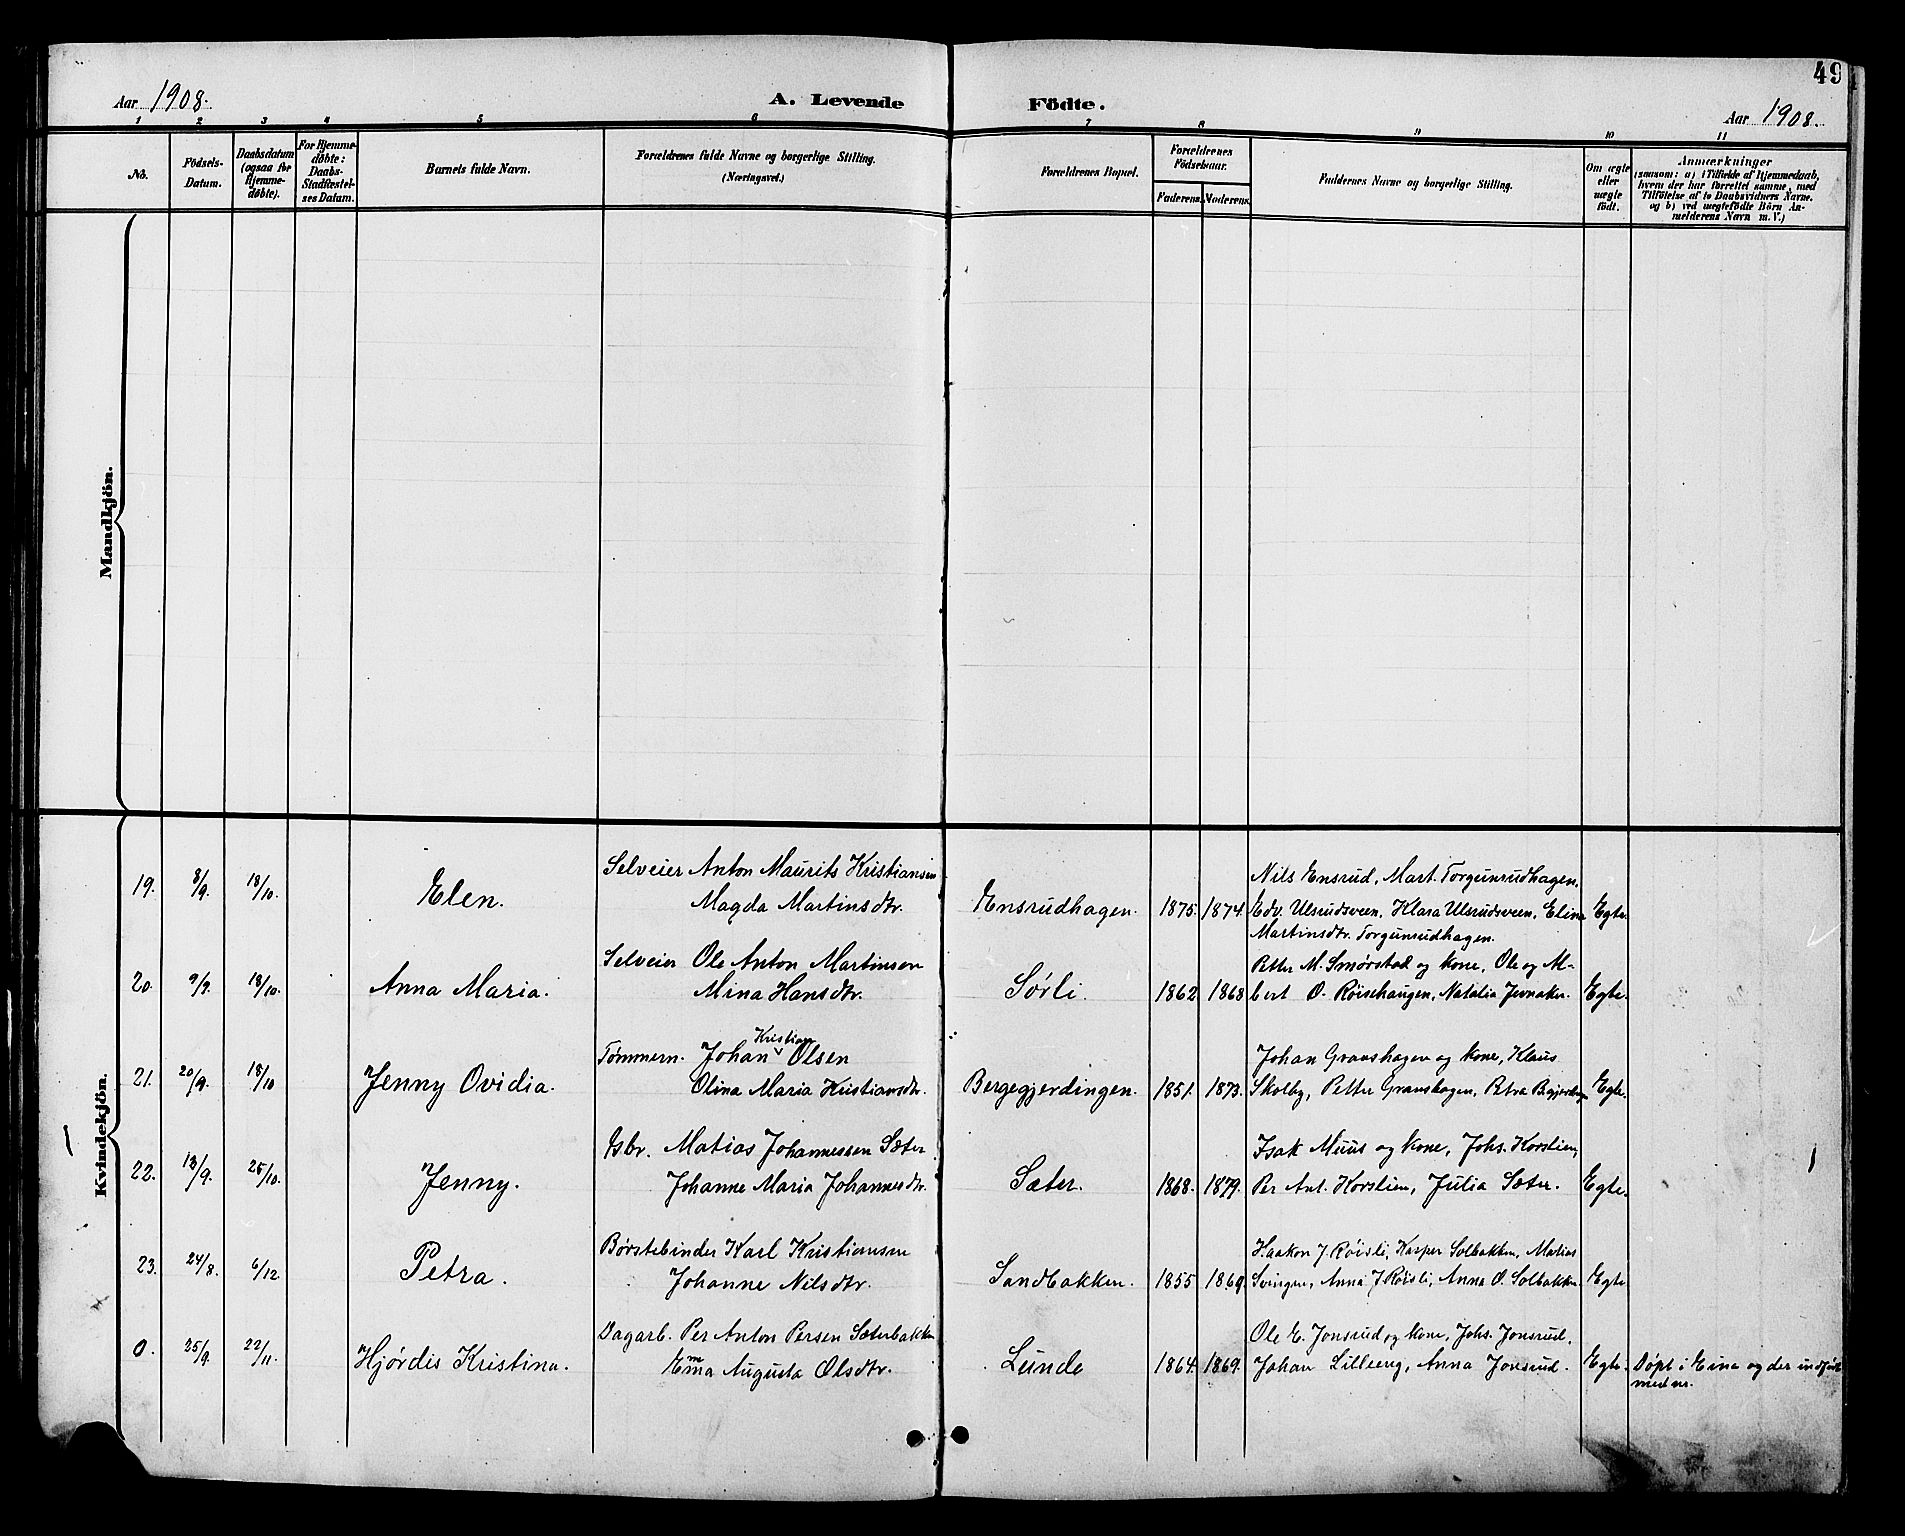 49
Aar 1908.
A. Levende Födte.
Aar 1908.
1 2 3 4 5 6 7 8 9 10 11
No.
Födsels-
Datum.
Daabsdatum
(ogsaa for
Hjemme-
døbte).
For Hjemme-
døbte:
Daabs-
Stadfæstel-
ses Datum.
Barnets fulde Navn.
Forældrenes fulde Navne og borgerlige Stilling.
(Næringsvei.)
Forældrenes Bopæl.
Forældrenes
Födselsaar.
Faderens. Moderens.
Faddernes Navne og borgerlige Stilling.
Om ægte
eller
uægte
født.
Anmærkninger
(saasom: a) i Tilfælde af Hjemmedaab,
hvem der har forrettet samme, med
Tilføielse af to Daabsvidners Navne.
og b) ved uægtefödte Börn An-
melderens Navn m. V.)
Mandkjön.
Kvindekjön.
19. 8/9. 18/10. Elen.
Selveier Anton Maurits Kristiansen
Magda Martinsdtr.
Ensrudhagen. 1875. 1874.
Nils Ensrud, Mart. Torgunrudhagen,
Edv. Ulsrudsveen, Klara Ulsrudsveen, Elina
Martinsdtr. Torgunrudhagen.
Egte.
20. 9/9. 18/10. Anna Maria.
Selveier Ole Anton Martinsen
Mina Hansdtr.
Sørli. 1862 1868
Petter M. Smørstad og kone, Ole og
O. Røisehaugen, Natalia Jevnaker.
Egte.
21. 20/9. 18/10 Jenny Ovidia.
Tømmerm. Johan Kristian Olsen
Olina Maria Kristiansdtr.
Bergegjerdingen. 1851. 1873.
Johan Granshagen og kone, Klaus
Skolby, Petter Granshagen, Petra
Egte.
22. 13/9. 25/10. Jenny.
Gbr. Matias Johannessen Sæter
Johanne Maria Johannesdtr.
Sæter. 1868. 1879.
Isak Muus og kone, Johs. Korslien,
Per Ant. Korslien, Julia Sæter.
Egte.
23. 24/8. 6/12. Petra.
Børstebinder Karl Kristiansen
Johanne Nilsdtr.
Sandbakken. 1855 1869
Haakon J. Røisli, Kasper Solbakken, Matias
Svingen, Anna J. Røisli, Anna O. Solbakken.
Egte
0. 25/9. 22/11. Hjørdis Kristina.
Dagarb. Per Anton Persen Sæterbakken
Emma Augusta Olsdtr.
Lunde 1864. 1869.
Ole E. Jonsrud og kone, Johs. Jonsrud,
Johan Lilleeng, Anna Jonsrud.
Egte.
Döpt i Eina og der indført
med nr.